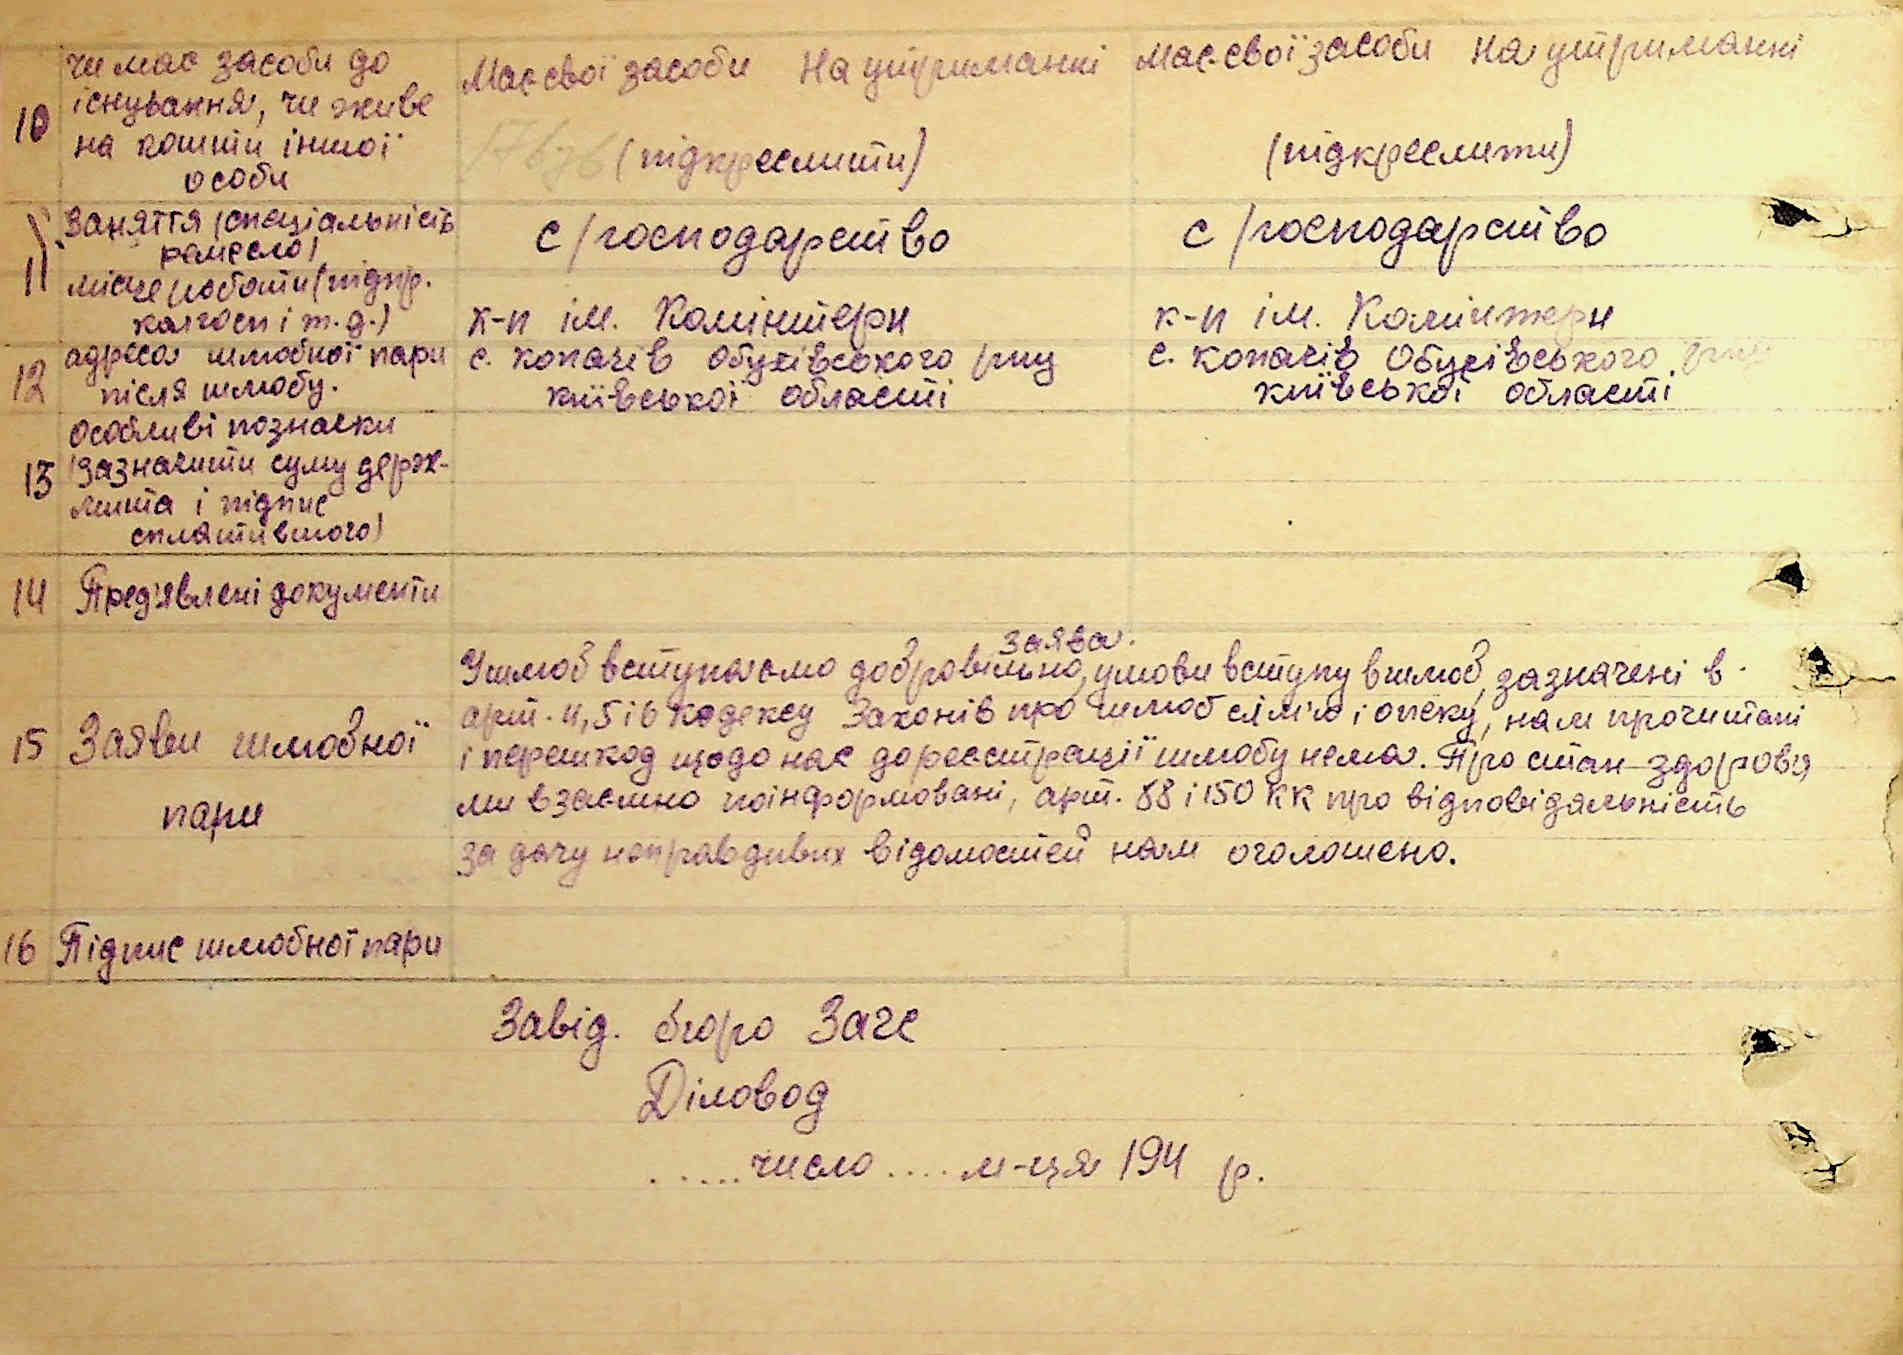 10 чи має засоби до існування, чи живе на кошти іншої особи
Має свої засоби На утриманні
(підкреслити)
Має свої засоби На утриманні
(підкреслити)
11 Заняття (спеціальність ремесло)
с/господарство
с/господарство
місце роботи (підпр. колгосп і т.д.)
к-п ім. Комінтерн
к-п ім. Комінтерн
12 адреса шлюбної пари після шлюбу.
с. Копачів Обухівського р-ну
київської області
с. Копачів Обухівського
київської області
13 особливі познаки (Зазначити суму держ-мита і підпис сплатившого)
14 Пред'явлені документи
15 Заяви шлюбної пари
Заява.
У шлюб вступаємо добровільно, умови вступу в шлюб, зазначені в
арт. 4, 5 і 6 Кодексу Законів про шлюб сім'ю і опеку, нам прочитані
і перешкод щодо нас до реєстрації шлюбу нема. Про стан здоров'я
ми взаємно поінформовані, арт. 88 і 150 КК про відповідальність
за дачу неправдивих відомостей нам оголошено.
16 Підпис шлюбної пари
Завід. бюро Загс
Діловод
..... число .... м-ця 194 р.